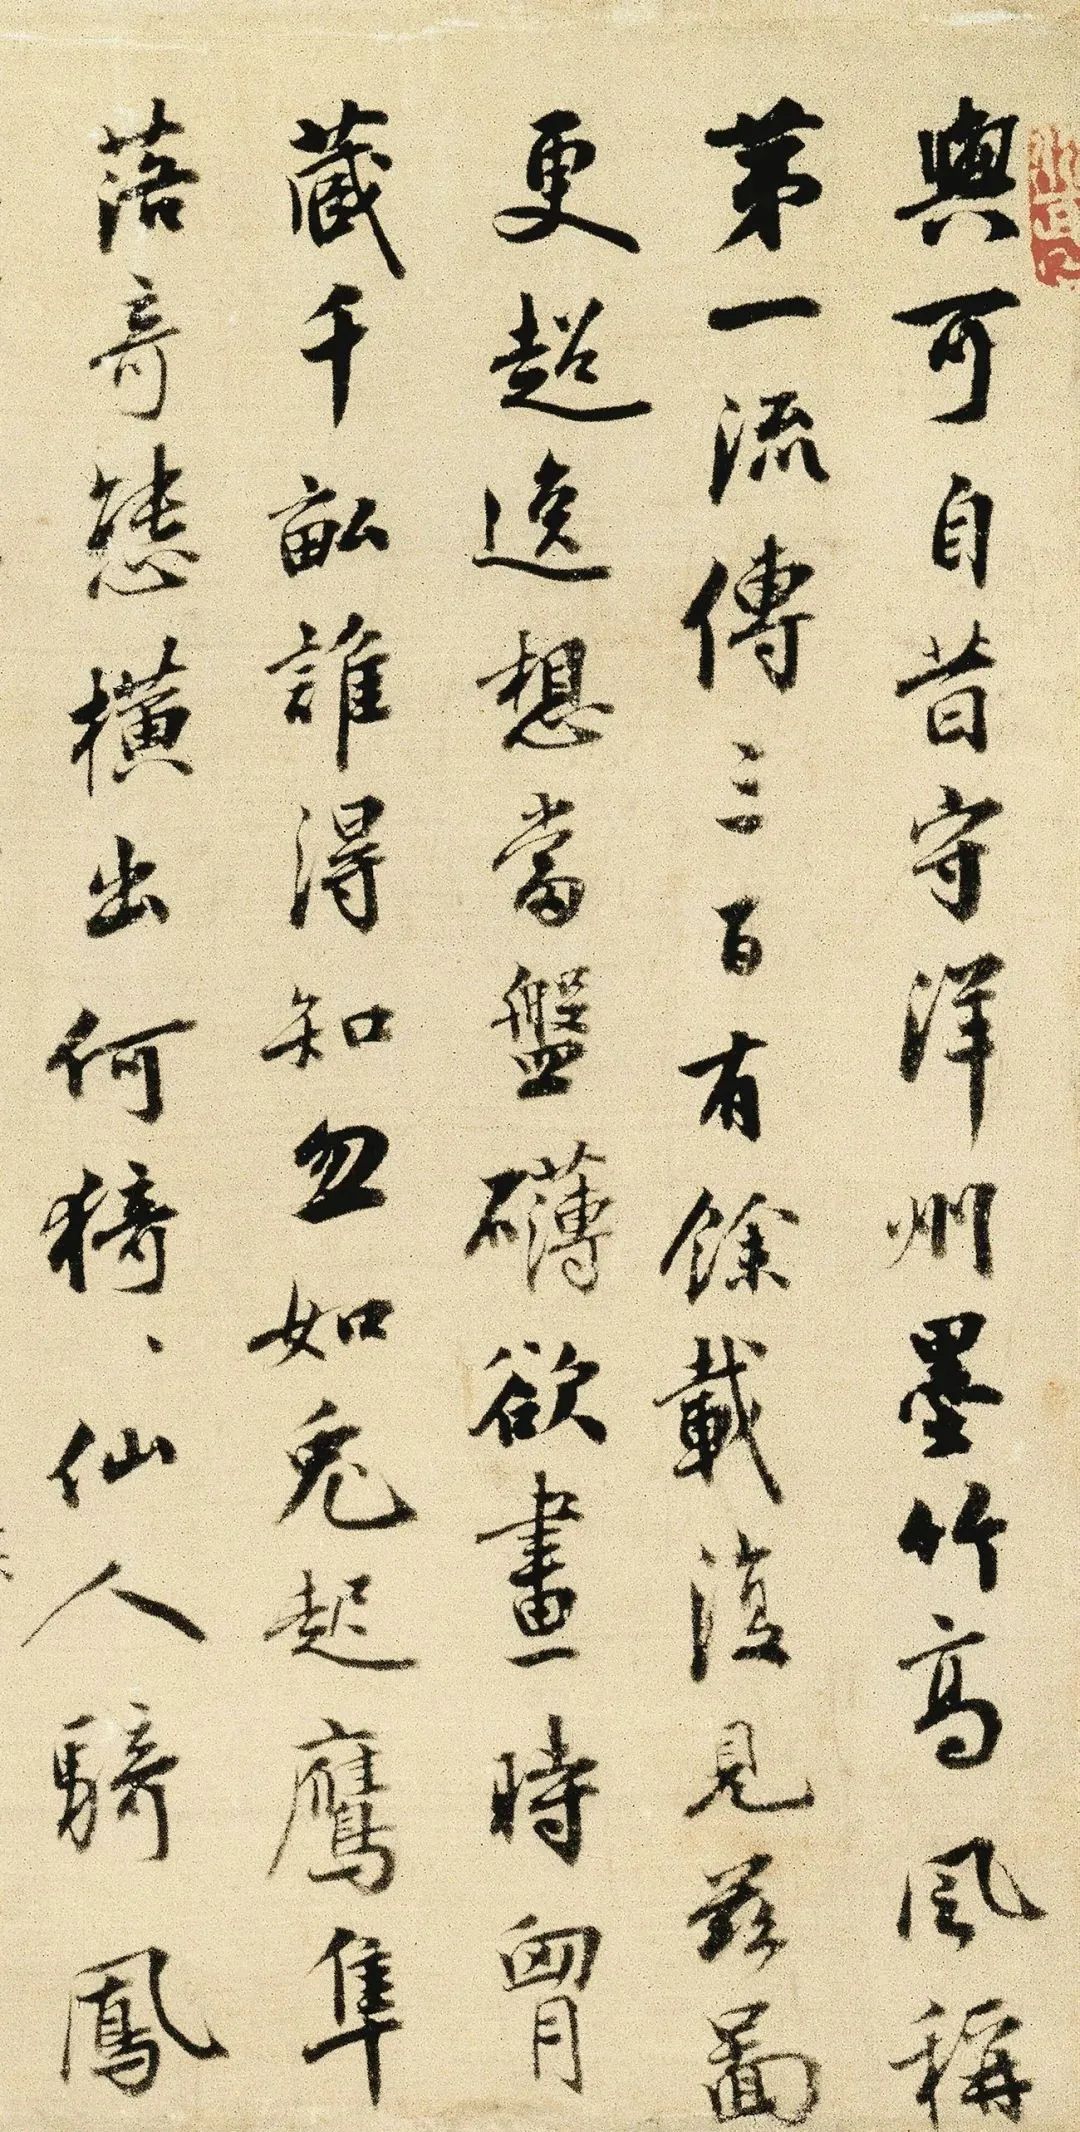 與可自昔守洋州墨竹高風稱
第一流傳三百有餘載復見茲圖
更超逸想當盤礴欲畫時胷
蔵千畝誰得知忽如兎起鷹隼
落奇態橫出何猗、仙人騎鳳